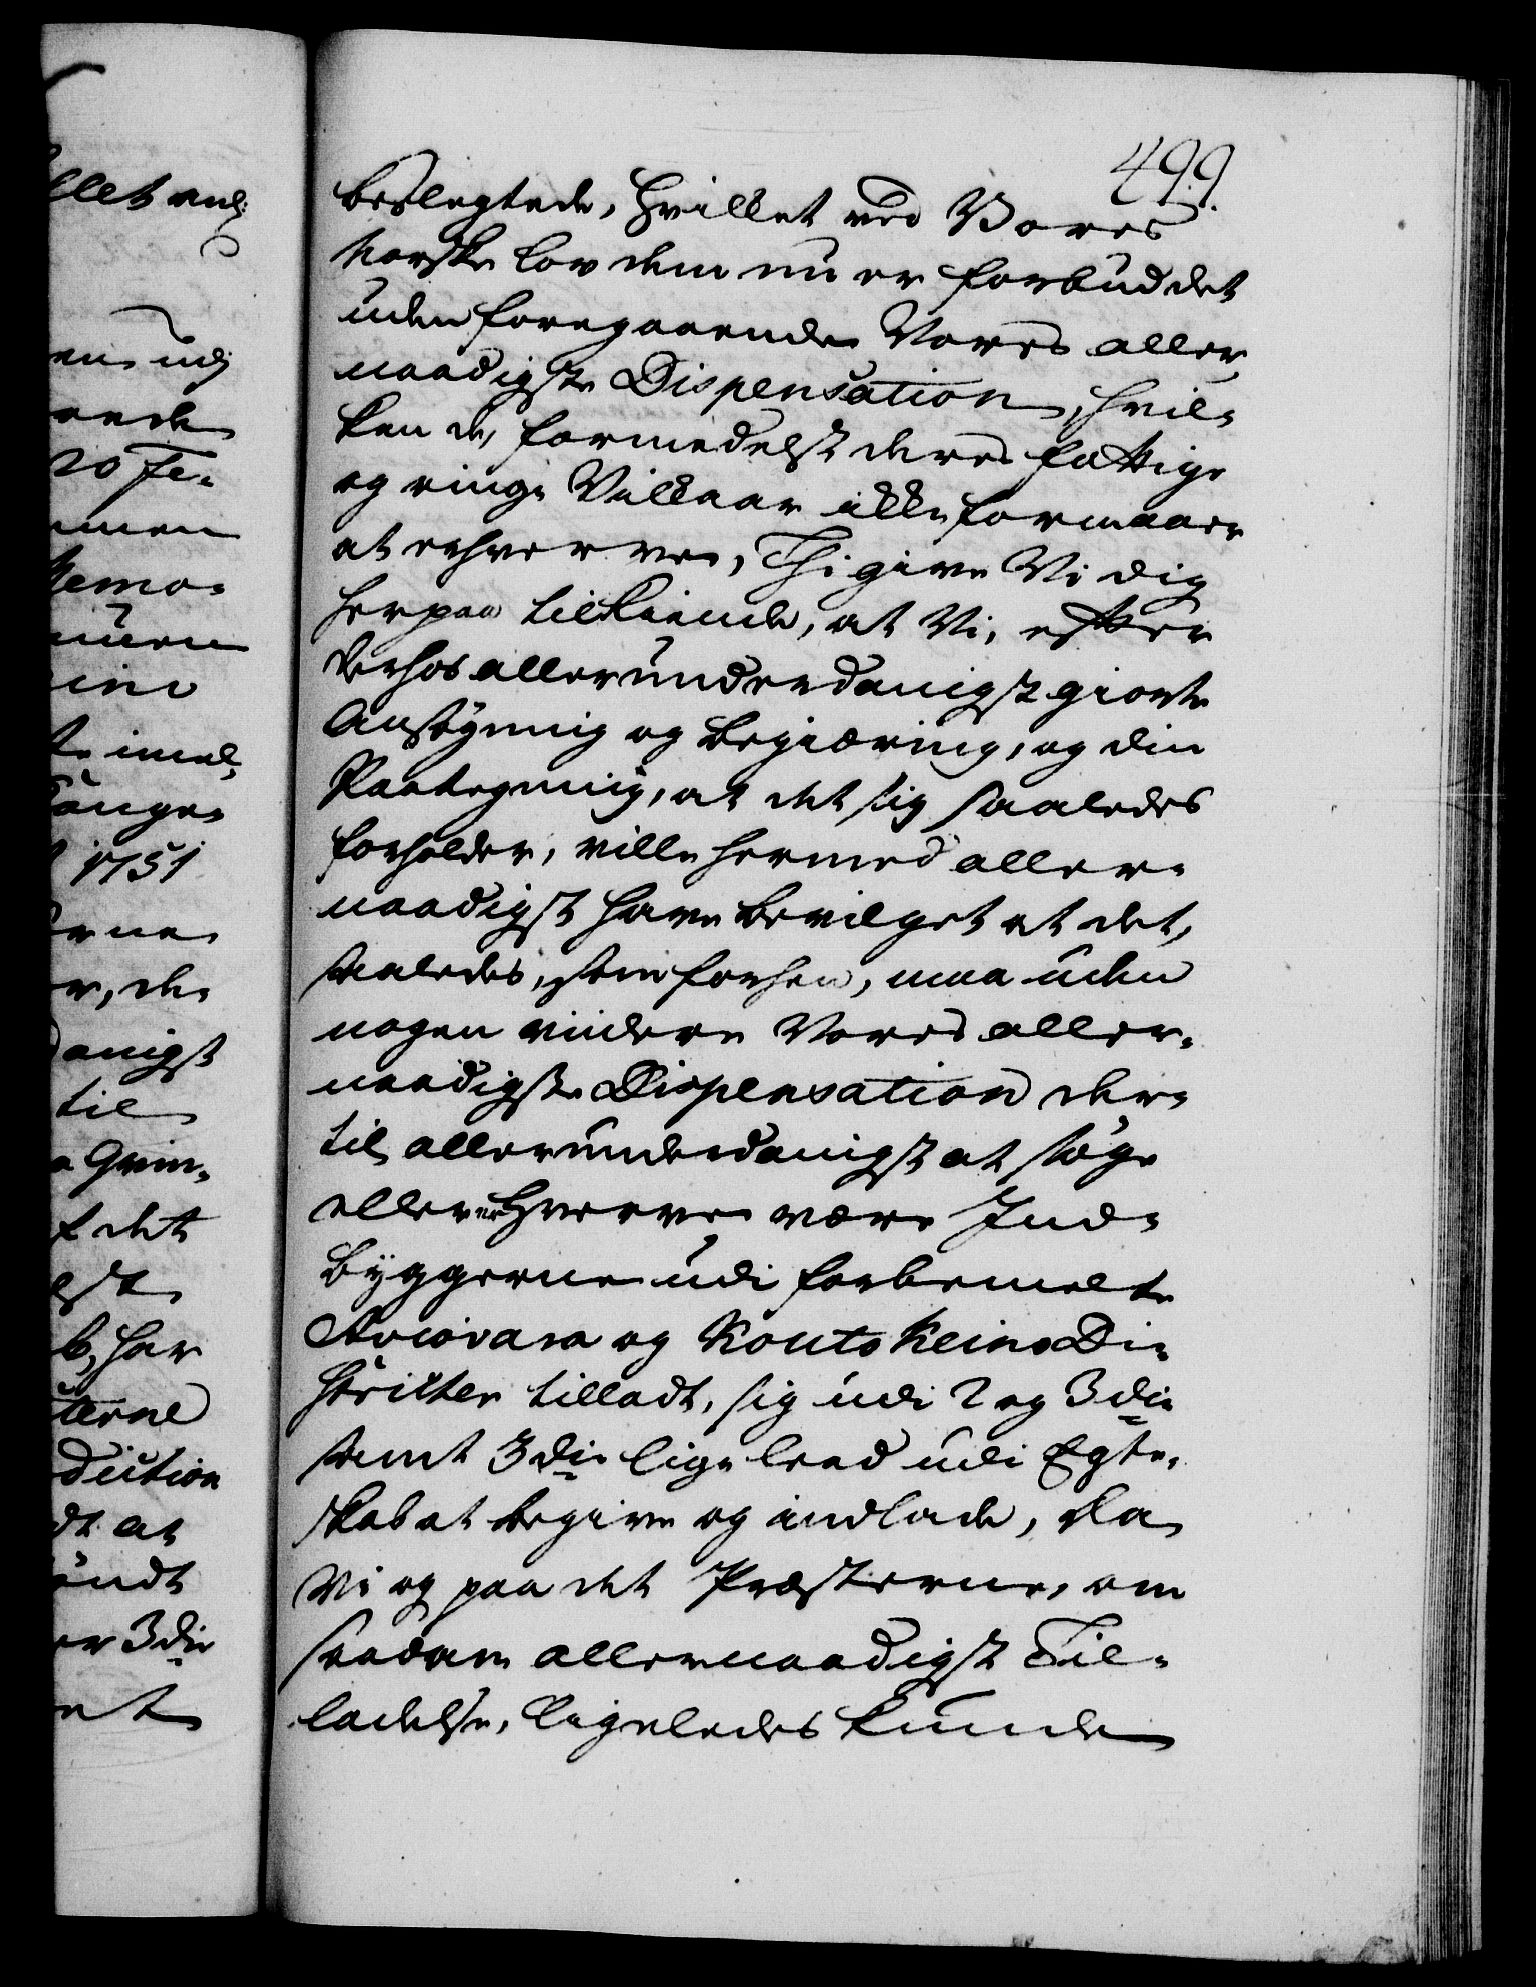 499.
beslegtede, hvilket ved Vores
Norske Lov dem nu er forbuddet
uden foregaaende Vores aller-
naadigste Dispensation, hvil-
ken de, formedelst deres fattige
og ringe Villkaar ikke formaaer
at erhverve, Thi give Vi dig
herpaa tilkiende, at Vi, efter
derhos allerunderdanigst giorte
Ansøgning og begiæring, og din
Paategning, at det sig saaledes
forholder, ville hermed aller-
naadigst have bevilget at det,
saaledes, som forhen, maa uden
nogen videre Vores aller-
naadigste Dispensation der-
til allerunderdanigst at søge
eller erhverve være Ind-
byggerne udi forbemelte
Aviovara og KoutoKeino Di-
stricter tilladt, sig udi 2 og 3die
samt 3die lige leed udi Egte-
skab at begive og indlade, Da
Vi og paa det Præsterne, om
saadan allernaadigst Til-
ladelse, ligeledes kunde
llet
20 Fe-
Memo-
1751
de
danigst
til
det
har
duction
at
er 3die